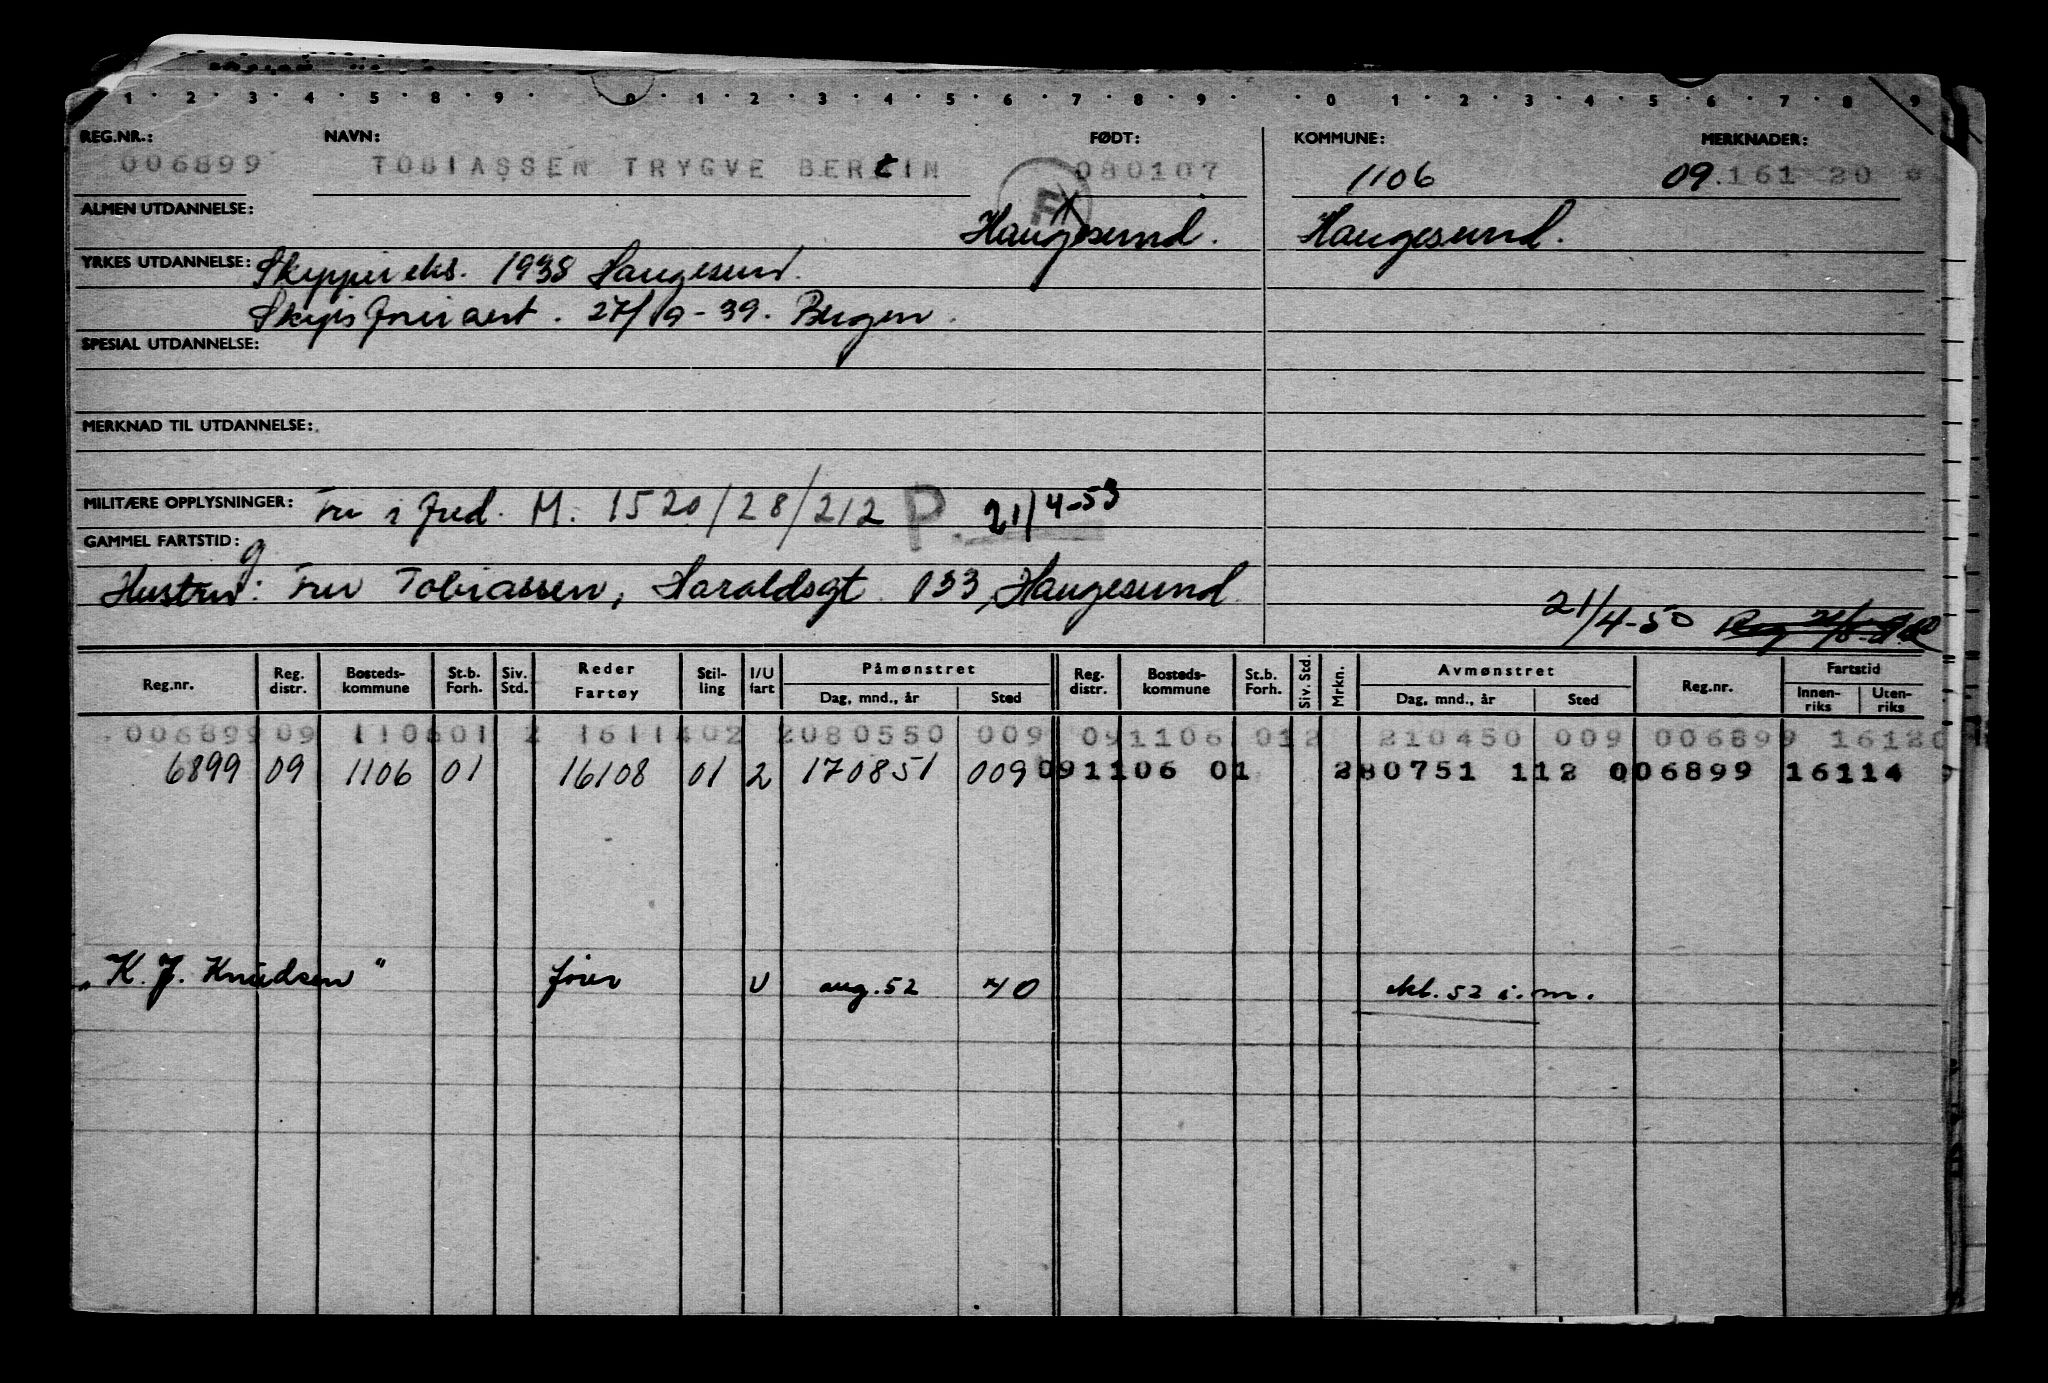 1 · 2 · 3 · 4 · 5 · 8 · 9 · 0 · 1 · 2 · 3 · 4 · 5 · 6 · 7 · 8 · 9 · · 0 · 1 · 2 · 3 · 4 · 5 · 6 · 7 · 8 · 9
REG.NR.: NAVN: FØDT: KOMMUNE: MERKNADER:
006899 TOBIASSEN TRYGVE BERtIN 080107 1106 09.161 20
F
ALMEN UTDANNELSE: Haugesund. Haugesund.
YRKES UTDANNELSE: Skipper eks. 1938 Haugesund.
Skipsfører sert. 27/9-39. Bergen.
SPESIAL UTDANNELSE:
MERKNAD TIL UTDANNELSE:
MILITÆRE OPPLYSNINGER: Fri i fred. M. 1520/28/212 P. 21/4-53
GAMMEL FARTSTID: g
Hustru: Fru Tobiassen, Haraldsgt 133, Haugesund.
21/4-50
Reg.nr. Reg. distr. Bosteds-kommune St.b. Forh. Siv. Std. Reder Fartøy Stil-ling I/U fart Påmønstret Dag, mnd., år Sted Reg. distr. Bosteds-kommune St.b. Forh. Siv. Std. Mrkn. Avmønstret Dag, mnd., år Sted Reg.nr. Fartstid Innen-riks Uten-riks
006899 09 1106 01 2 1611402 2080550 009 091106 012 210450 009 006899 16120
6899 09 1106 01 16108 01 2 170851 009 091106 01 280751 112 006899 16114
„K. J. Knudsen" fører U aug. 52 40 okt. 52 i.m.